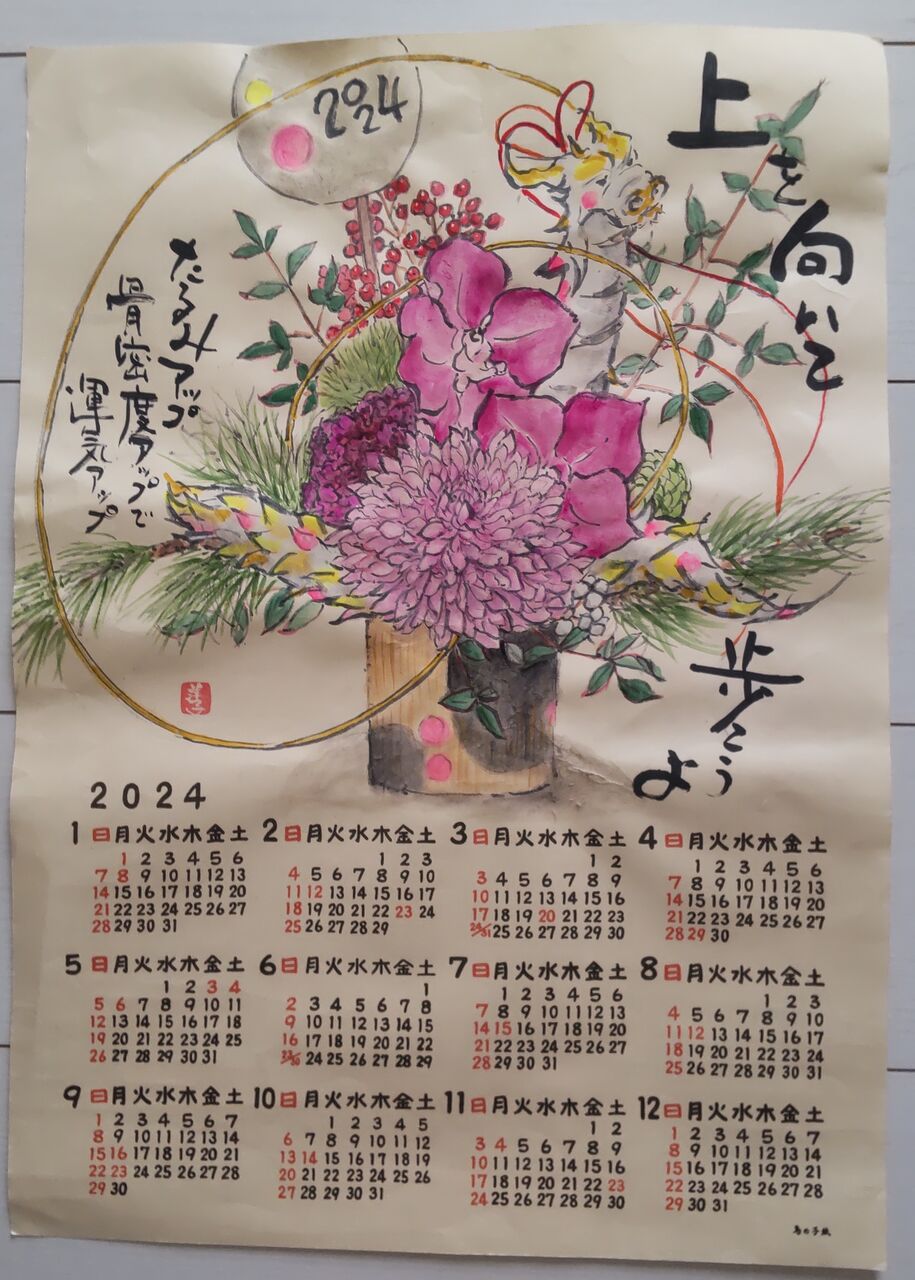 2024
上を向いて
歩こう
よ
たるみアップ
骨密度アップで
運気アップ
2024
1 日月火水木金土
1 2 3 4 5 6
7 8 9 10 11 12 13
14 15 16 17 18 19 20
21 22 23 24 25 26 27
28 29 30 31
2 日月火水木金土
1 2 3
4 5 6 7 8 9 10
11 12 13 14 15 16 17
18 19 20 21 22 23 24
25 26 27 28 29
3 日月火水木金土
1 2
3 4 5 6 7 8 9
10 11 12 13 14 15 16
17 18 19 20 21 22 23
24/31 25 26 27 28 29 30
4 日月火水木金土
1 2 3 4 5 6
7 8 9 10 11 12 13
14 15 16 17 18 19 20
21 22 23 24 25 26 27
28 29 30
5 日月火水木金土
1 2 3 4
5 6 7 8 9 10 11
12 13 14 15 16 17 18
19 20 21 22 23 24 25
26 27 28 29 30 31
6 日月火水木金土
1
2 3 4 5 6 7 8
9 10 11 12 13 14 15
16 17 18 19 20 21 22
23/30 24 25 26 27 28 29
7 日月火水木金土
1 2 3 4 5 6
7 8 9 10 11 12 13
14 15 16 17 18 19 20
21 22 23 24 25 26 27
28 29 30 31
8 日月火水木金土
1 2 3
4 5 6 7 8 9 10
11 12 13 14 15 16 17
18 19 20 21 22 23 24
25 26 27 28 29 30 31
9 日月火水木金土
1 2 3 4 5 6 7
8 9 10 11 12 13 14
15 16 17 18 19 20 21
22 23 24 25 26 27 28
29 30
10 日月火水木金土
1 2 3 4 5
6 7 8 9 10 11 12
13 14 15 16 17 18 19
20 21 22 23 24 25 26
27 28 29 30 31
11 日月火水木金土
1 2
3 4 5 6 7 8 9
10 11 12 13 14 15 16
17 18 19 20 21 22 23
24 25 26 27 28 29 30
12 日月火水木金土
1 2 3 4 5 6 7
8 9 10 11 12 13 14
15 16 17 18 19 20 21
22 23 24 25 26 27 28
29 30 31
鳥の子紙